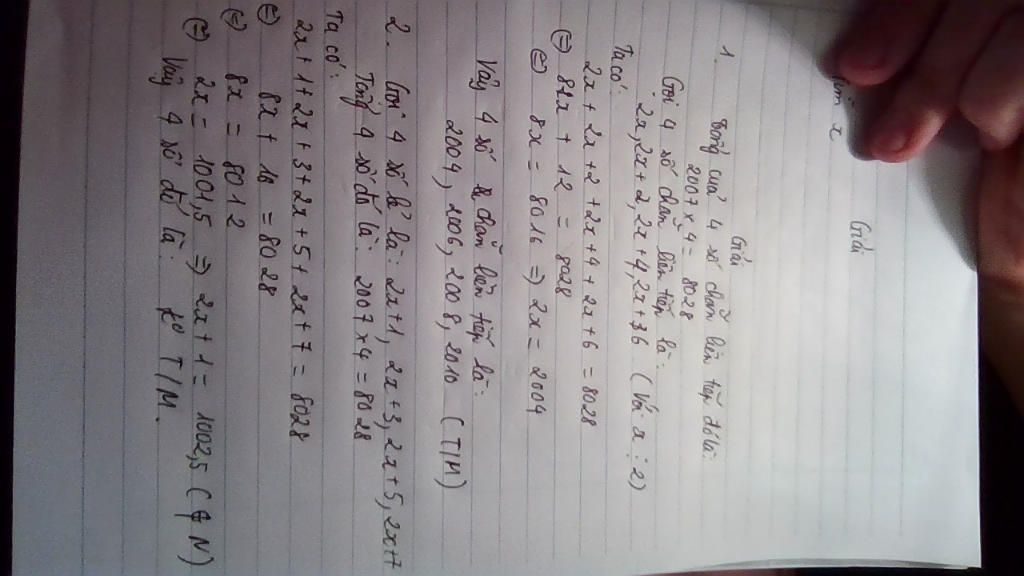 Giải
Giải
1. Tổng của 4 số chẵn liên tiếp đó là:
2007 x 4 = 8028
Gọi 4 số chẵn liên tiếp là:
2x, 2x+2, 2x+4, 2x+6 (Với x : 2)
Ta có:
2x + 2x+2 + 2x+4 + 2x+6 = 8028
⇔ 8x + 12 = 8028
⇔ 8x = 8016 ⇒ 2x = 2004
Vậy 4 số chẵn liên tiếp là:
2004, 2006, 2008, 2010 (T/M)
2. Gọi 4 số lẻ là: 2x+1, 2x+3, 2x+5, 2x+7
Tổng 4 số đó là: 2007 x 4 = 8028
Ta có:
2x+1 + 2x+3 + 2x+5 + 2x+7 = 8028
⇔ 8x + 16 = 8028
⇔ 8x = 8012
⇔ 2x = 1001,5 ⇒ 2x+1 = 1002,5 (∉ N)
Vậy 4 số đó là: ko T/M.